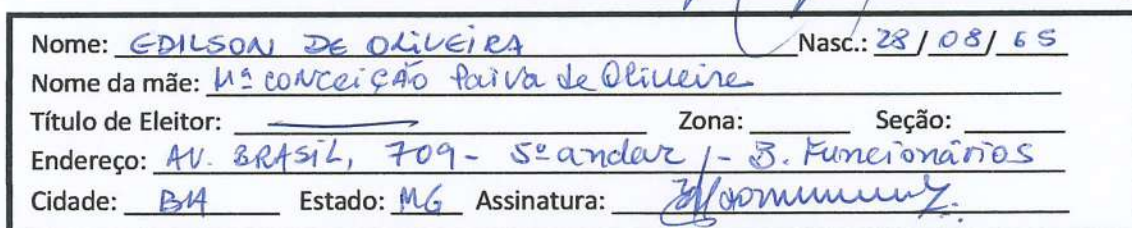 Nome: EDILSON DE OLIVEIRA Nasc.: 28/08/65
Nome da mãe: Mª CONCEIÇÃO Paiva de Oliveira
Título de Eleitor: Zona: Seção:
Endereço: AV. BRASIL, 709 - 5º andar - B. Funcionários
Cidade: BH Estado: MG Assinatura: